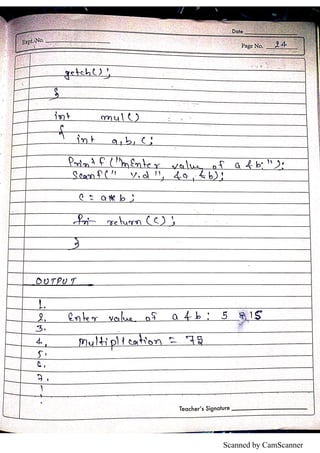 Date
Expt. No.
Page No. 24
getch();
}
int mul()
{
int a,b,c;
Printf("\nEnter value of a & b:");
Scanf("%d", &a, &b);
c = a*b;
return(c);
}
OUTPUT
1.
2. Enter value of a & b: 5 15
3.
4. Multiplication = 75
5.
6.
7.
Teacher's Signature
Scanned by CamScanner